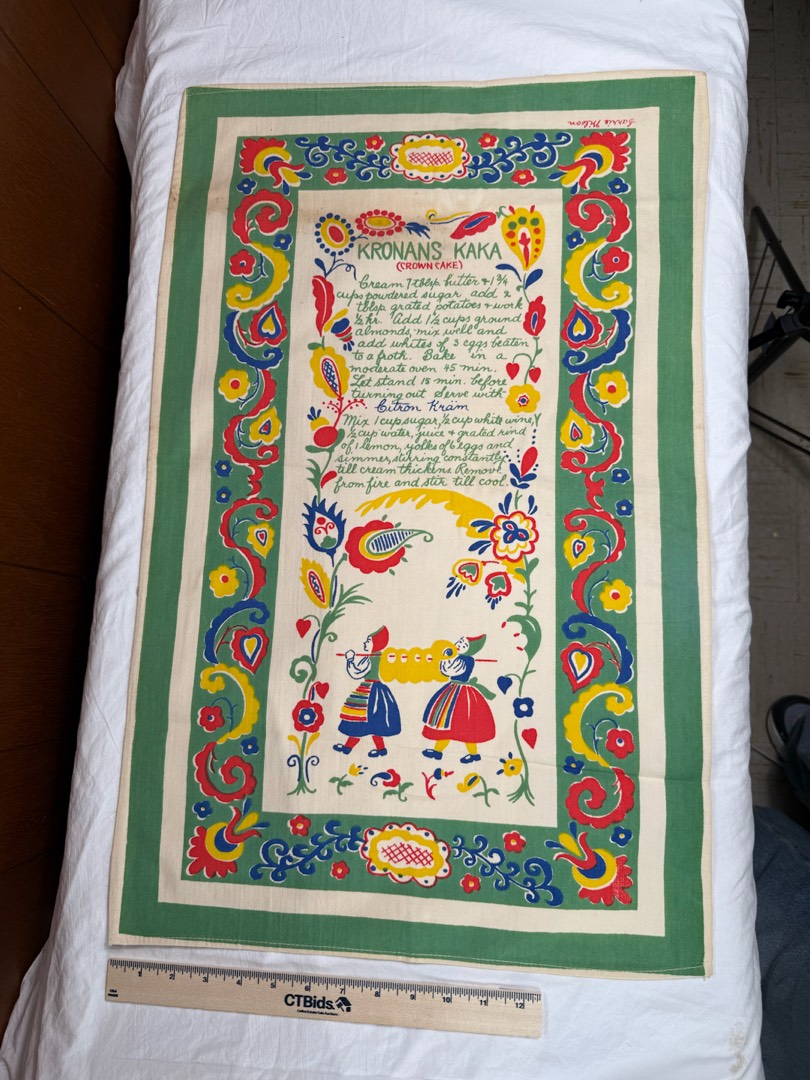 KRONANS KAKA
(CROWN CAKE)
Cream 7 tblsp. butter & 1 3/4
cups powdered sugar add 2
tblsp grated potatoes & work
1/2 hr. Add 1 1/2 cups ground
almonds, mix well and
add whites of 3 eggs beaten
to a froth. Bake in a
moderate oven 45 min.
Let stand 15 min. before
turning out. Serve with
Citron Kräm
Mix 1 cup sugar, 1/2 cup white wine,
1/2 cup water, juice & grated rind
of 1 lemon, yolks of 6 eggs and
simmer, stirring constantly
till cream thickens. Remove
from fire and stir till cool.
1 2 3 4 5 6 7 8 9 10 11 12
CTBids.